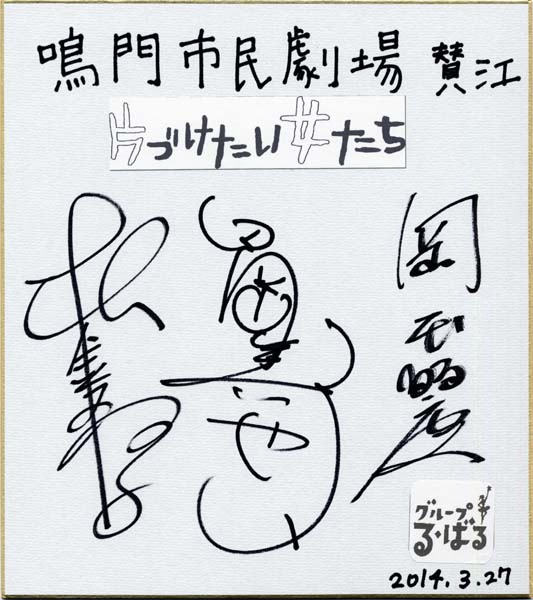 鳴門市民劇場 賛江
片づけたい女たち
岡本麗
グループ
る・ばる
2014.3.27